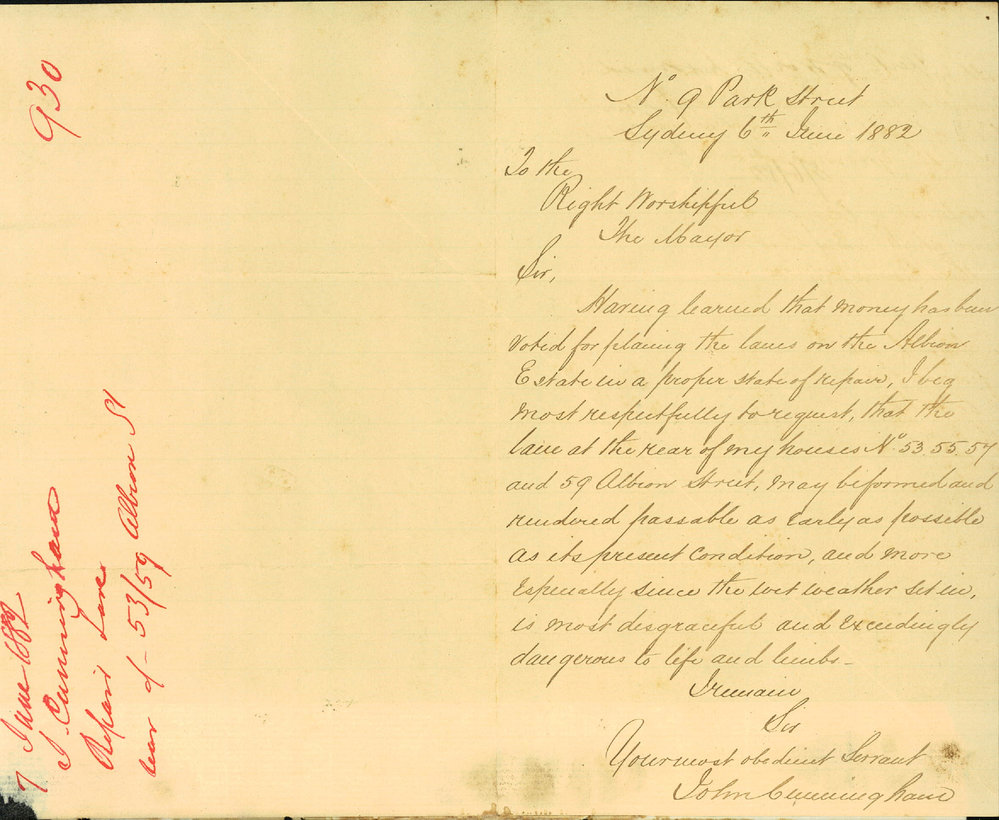 930
7 June 1882
J. Cunningham
Repair Lane
rear of 53/59 Albion St
No 9 Park Street
Sydney 6th June 1882
To the
Right Worshipful
The Mayor
Sir,
Having learned that money has been
voted for placing the lanes on the Albion
Estate in a proper state of repair, I beg
most respectfully to request, that the
lane at the rear of my houses No 53.55.57
and 59 Albion Street, may be formed and
rendered passable as early as possible
as its present condition, and more
especially since the wet weather set in,
is most disgraceful and exceedingly
dangerous to life and limbs_
I remain
Sir
Your most obedient Servant
John Cunningham